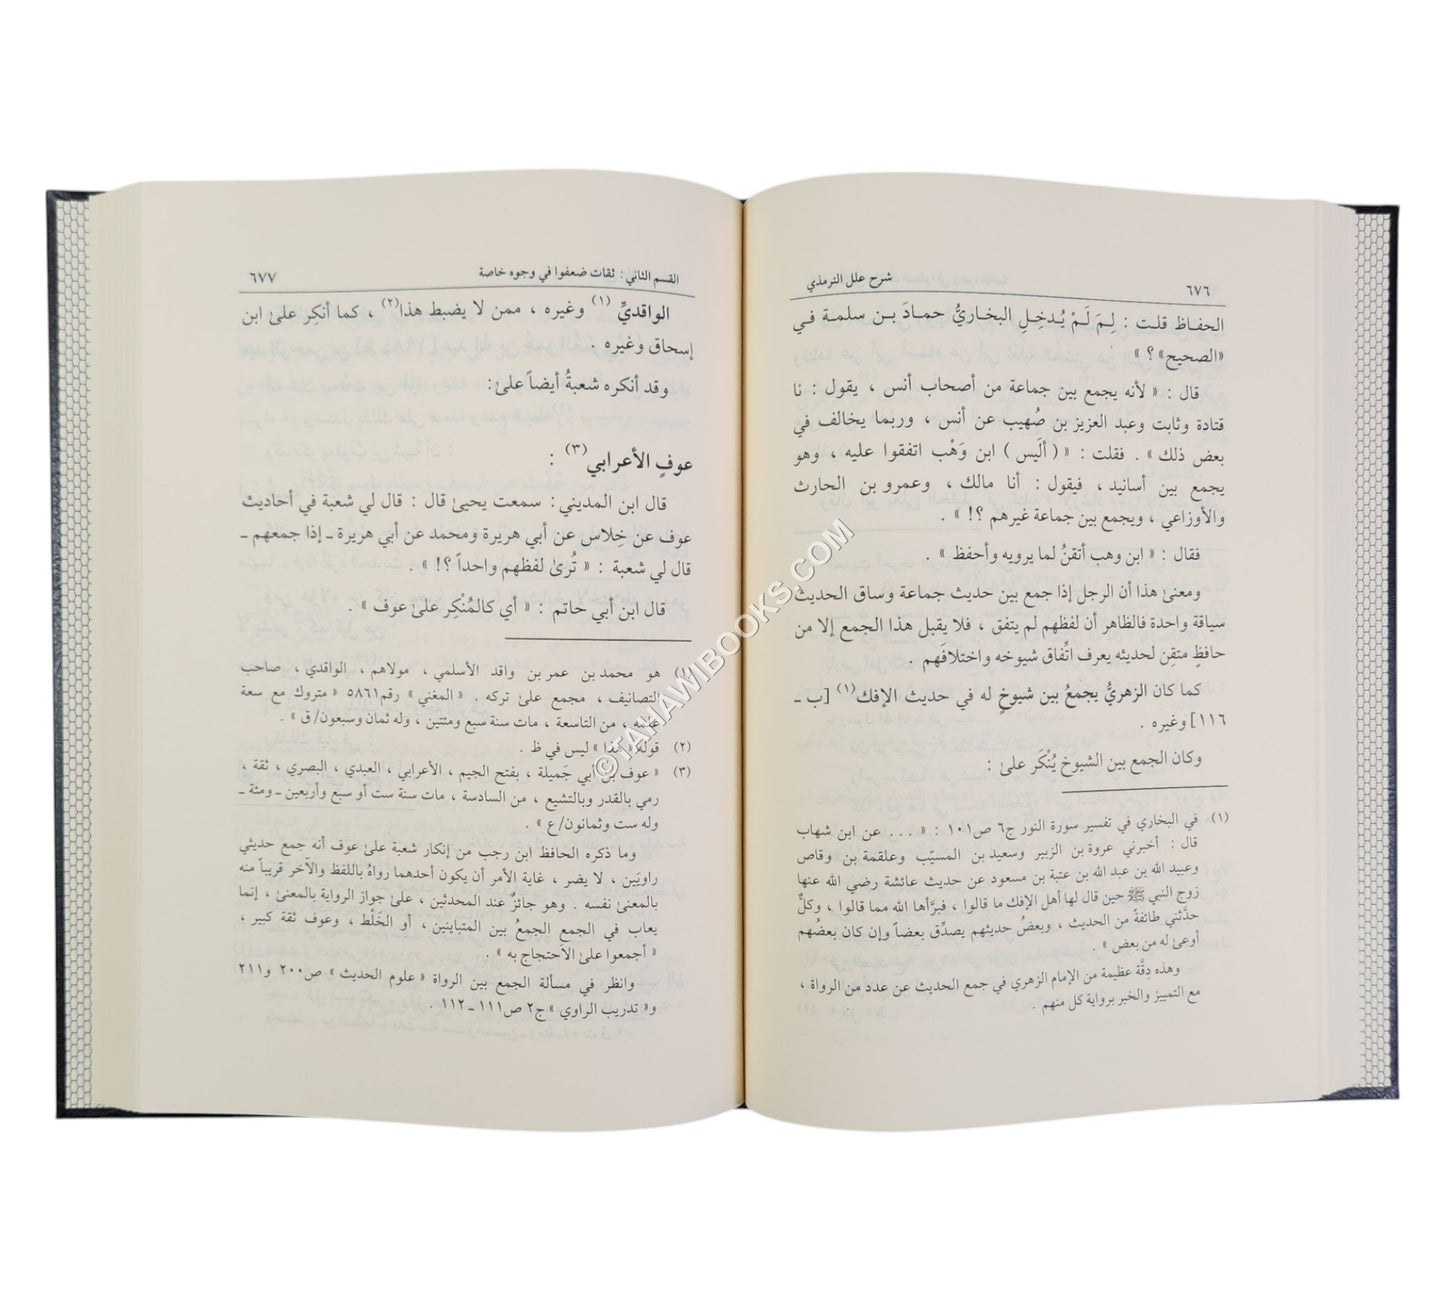 ٦٧٦
شرح علل الترمذي
الحفاظ قلت : لِمَ لَمْ يُدخِلِ البخاريُّ حمادَ بـن سلمة في
«الصحيح» ؟ »
قال : « لأنه يجمع بين جماعة من أصحاب أنس ، يقول : نا
قتادة وثابت وعبد العزيز بن صُهيب عن أنس ، وربما يخالف في
بعض ذلك » . فقلت : « ( أليس ) ابن وَهْب اتفقوا عليه ، وهو
يجمع بين أسانيد ، فيقول : أنا مالك ، وعمرو بن الحارث
والأوزاعي ، ويجمع بين جماعة غيرهم ؟! » .
فقال : « ابن وهب أتقنُ لما يرويه وأحفظ » .
ومعنىٰ هذا أن الرجل إذا جمع بين حديث جماعة وساق الحديث
سياقة واحدة فالظاهر أن لفظهم لم يتفق ، فلا يقبل هذا الجمع إلا من
حافظٍ متقِن لحديثه يعرف اتِّفاق شيوخه واختلافَهم .
كما كان الزهريُّ يجمعُ بين شيوخٍ له في حديث الإفك(١) [ب ـ
١١٦] وغيره .
وكان الجمع بين الشيوخ يُنْكَر علىٰ :
(١) في البخاري في تفسير سورة النور ج٦ ص١٠١ : « . . . عن ابن شهاب
قال : أخبرني عروة بن الزبير وسعيد بن المسيّب وعلقمة بن وقاص
وعبيد الله بن عبد الله بن عتبة بن مسعود عن حديث عائشة رضي الله عنها
زوج النبي ﷺ حين قال لها أهل الإفك ما قالوا ، فبرَّأها الله مما قالوا ، وكلٌّ
حدَّثني طائفةً من الحديث ، وبعضُ حديثهم يصدِّق بعضاً وإن كان بعضُهم
أوعىٰ له من بعض » .
وهذه دِقَّة عظيمة من الإمام الزهري في جمع الحديث عن عدد من الرواة ،
مع التمييز والخبر برواية كل منهم .
القسم الثاني : ثقات ضعفوا في وجوه خاصة
٦٧٧
الواقديِّ(١) وغيره ، ممن لا يضبط هذا(٢) ، كما أنكِر علىٰ ابن
إسحاق وغيره .
وقد أنكره شعبةُ أيضاً علىٰ:
عوفٍ الأعرابي(٣) :
قال ابن المديني : سمعت يحيىٰ قال : قال لي شعبة في أحاديث
عوف عن خِلاس عن أبي هريرة ومحمد عن أبي هريرة ـ إذا جمعهم ـ
قال لي شعبة : « تُرىٰ لفظهم واحداً ؟! » .
قال ابن أبي حاتم : « أي كالمُنْكِر علىٰ عوف » .
(١) هو محمد بن عمر بن واقد الأسلمي ، مولاهم ، الواقدي ، صاحب
التصانيف ، مجمع علىٰ تركه . «المغني» رقم٥٨٦١ «متروك مع سعة
علمه ، من التاسعة ، مات سنة سبع ومئتين ، وله ثمان وسبعون/ ق » .
(٢) قوله « هذا » ليس في ظ .
(٣) « عوف بن أبي جَميلة ، بفتح الجيم ، الأعرابي ، العبدي ، البصري ، ثقة ،
رمي بالقدر وبالتشيع ، من السادسة ، مات سنة ست أو سبع وأربعين ـ ومئة ـ
وله ست وثمانون/ع » .
وما ذكره الحافظ ابن رجب من إنكار شعبة علىٰ عوف أنه جمع حديثي
راويَين ، لا يضر ، غاية الأمر أن يكون أحدهما رواهُ باللفظ والآخر قريباً منه
بالمعنىٰ نفسه . وهو جائزٌ عند المحدثين ، علىٰ جواز الرواية بالمعنىٰ ، إنما
يعاب في الجمع الجمعُ بين المتباينين ، أو الخَلْط ، وعوف ثقة كبير ،
« أجمعوا علىٰ الاحتجاج به » .
وانظر في مسألة الجمع بين الرواة « علوم الحديث » ص٢٠٠ و٢١١
و« تدريب الراوي » ج٢ ص١١١ ـ ١١٢ .
©TAHAWIBOOKS.COM